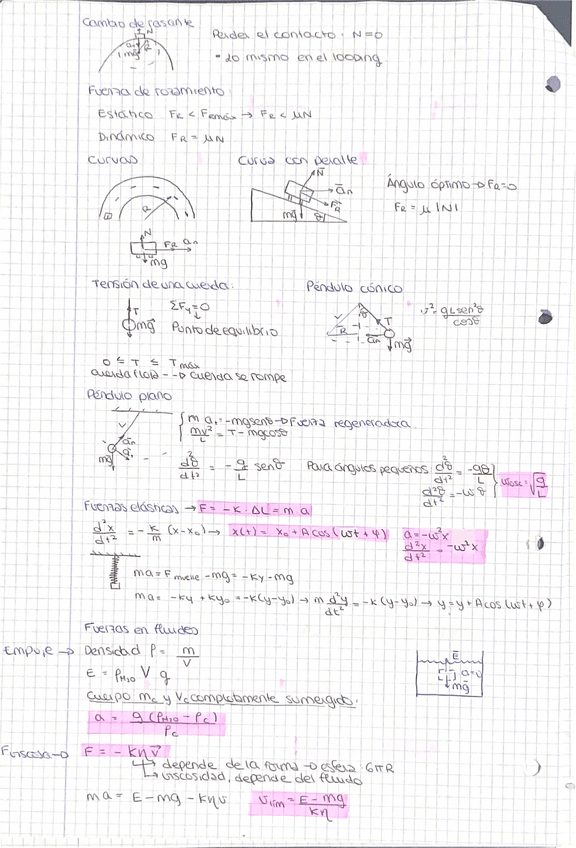 Cambio de rasante
Perder el contacto · N=0
• Lo mismo en el looping
N
an
mg
Fuerza de rozamiento:
Estático FR < Femáx → FR < μN
Dinámico FR = μN
Curvas
Curva con peralte
N
an
FR
mg
θ
Ángulo óptimo → FR=0
FR = μ |N|
R
N
FR an
mg
Tensión de una cuerda:
Péndulo cónico
T
mg
ΣFy=0
Punto de equilibrio
θ
T
R
an
mg
v²= gLsen²θ / cosθ
0 ≤ T ≤ Tmáx
cuerda se rompe
Péndulo plano
an
mg
m at = -mgsenθ → Fuerza regeneradora
mv²/L = T - mgcosθ
d²θ/dt² = -g/L senθ
Para ángulos pequeños: d²θ/dt² = -gθ/L
d²θ/dt² = -ω²θ
ωosc = √g/L
Fuerzas elásticas → F = -K · ΔL = m a
d²x/dt² = -K/m (x-x0) → x(t) = x0 + A cos (ωt + φ)
a=-ω²x
d²x/dt² = -ω²x
ma = Fmuelle - mg = -Ky - mg
ma = -Ky + Ky0 = -K(y-y0) → m d²y/dt² = -K (y-y0) → y = y + A cos (ωt + φ)
Fuerzas en fluidos
Empuje → Densidad ρ = m/V
E = ρH2O V g
Cuerpo mc y Vc completamente sumergido:
a = g (ρH2O - ρc) / ρc
E
a=0
mg
F = - Kηv
depende de la forma → esfera: 6πR
viscosidad, depende del fluido
ma = E - mg - Kηv
vlím = E - mg / Kη